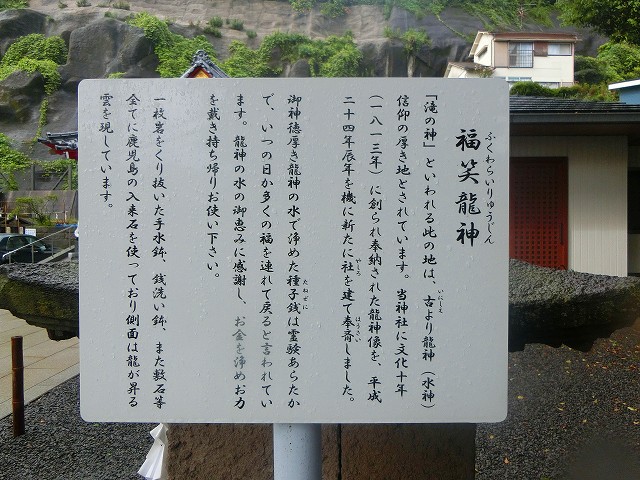 ふくわらいりゅうじん
福笑龍神
「滝の神」といわれる此の地は、古より龍神（水神）
いにしえ
信仰の厚き地とされています。当神社に文化十年
（一八一三年）に創られ奉納された龍神像を、平成
二十四年辰年を機に新たに社を建て奉斎しました。
やしろ
ほうさい
御神徳厚き龍神の水で浄めた種子銭は霊験あらたか
たねぜに
で、いつの日か多くの福を連れて戻ると言われてい
ます。龍神の水の御恵みに感謝し、お金を浄めお力
を戴き持ち帰りお使い下さい。
一枚岩をくり抜いた手水鉢、銭洗い鉢、また敷石等
全てに鹿児島の入来石を使っており側面は龍が昇る
雲を現しています。